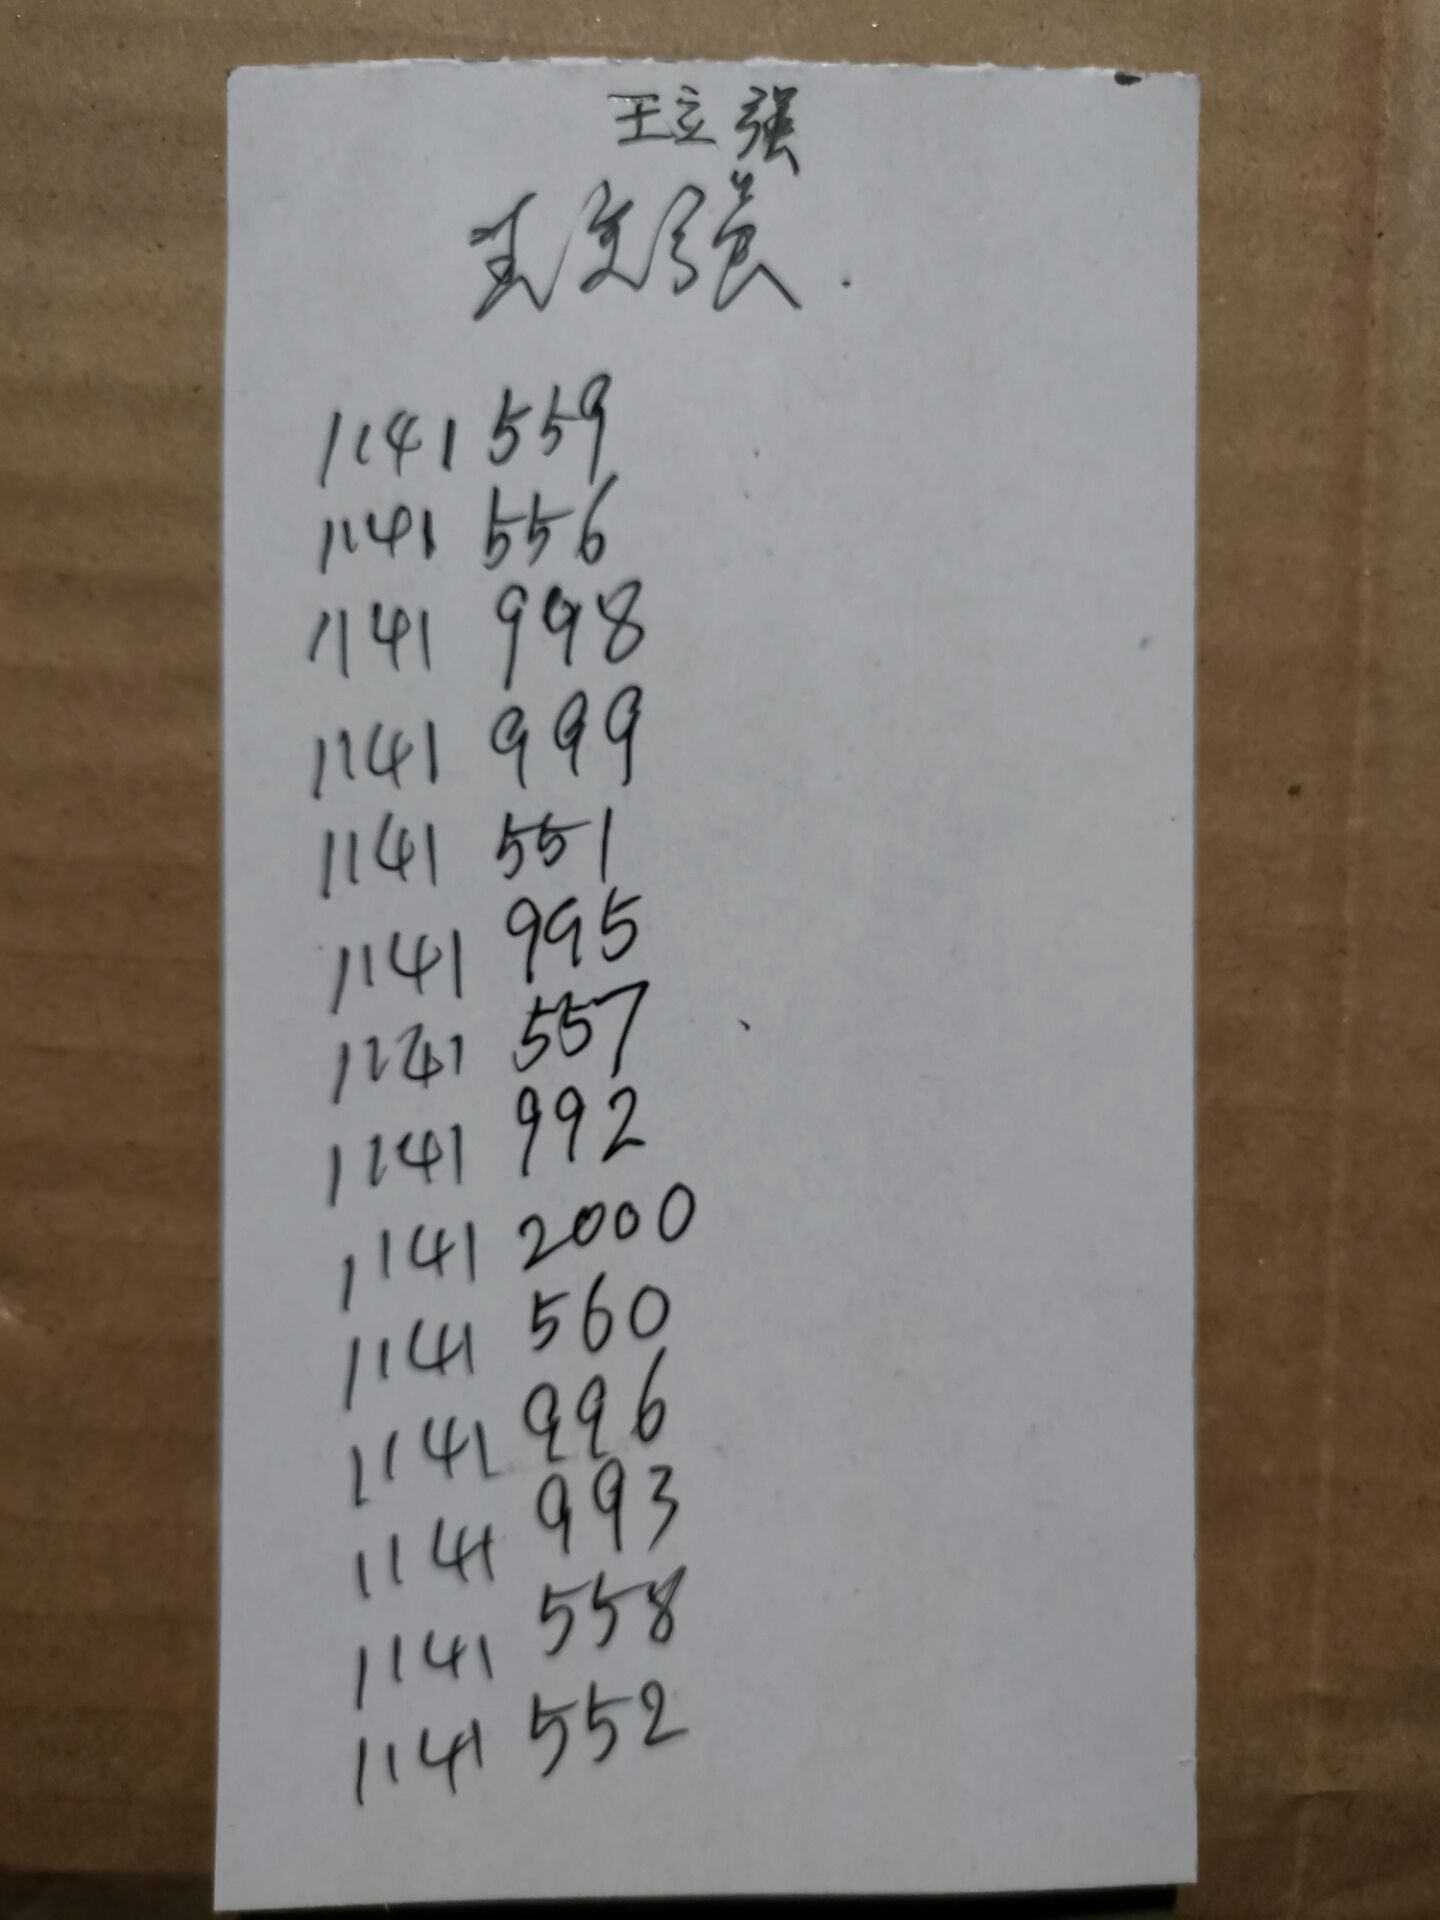 王立强
王立强.
1141 559
1141 556
1141 998
1141 999
1141 551
1141 995
1141 557
1141 992
1141 2000
1141 560
1141 996
1141 993
1141 558
1141 552